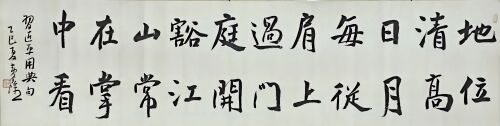 地位
清高
日月
每從
肩上
過門
庭開
豁江
山常
在掌
中看
習近平用典句
乙巳